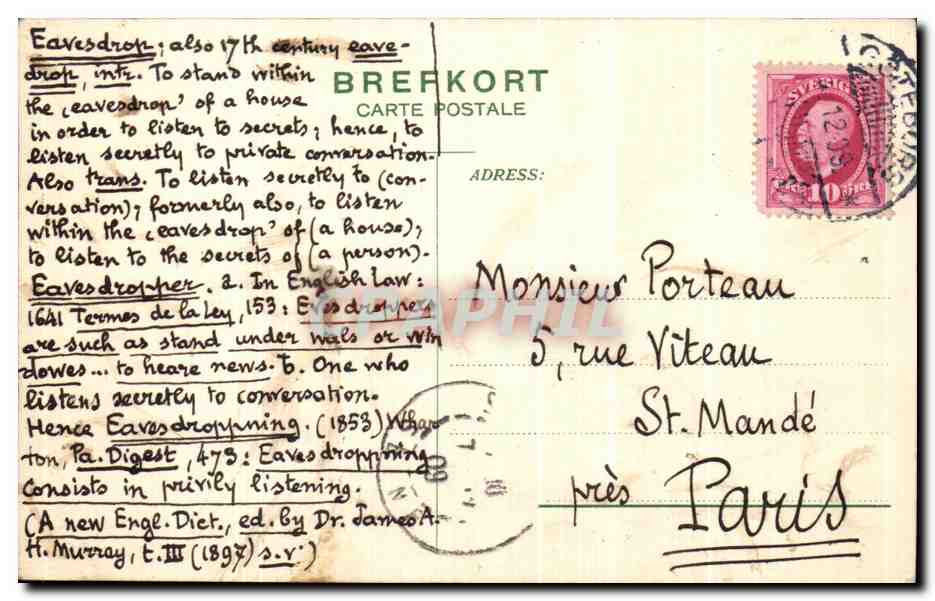 Eavesdrop; also 17th century eave-
drop, intr. To stand within
the ‚eavesdrop' of a house
in order to listen to secrets; hence, to
listen secretly to private conversation.
Also trans. To listen secretly to (con-
versation); formerly also, to listen
within the ‚eavesdrop' of (a house);
to listen to the secrets of (a person).
Eavesdropper. a. In English Law:
1641 Termes de la Ley, 153: Evesdroppers
are such as stand under wals or win
dowes... to heare news. b. One who
listens secretly to conversation.
Hence Eavesdroppning. (1853) Whar
ton, Pa. Digest, 473: Eavesdroppning
consists in privily listening.
(A new Engl. Dict., ed. by Dr. James A.
H. Murray, t. III (1897) s.v.)
BREFKORT
CARTE POSTALE
ADRESS:
SVERIGE
10
GÖTEBORG
Monsieur Porteau
5, rue Viteau
St. Mandé
près Paris
DELCAMPHIL